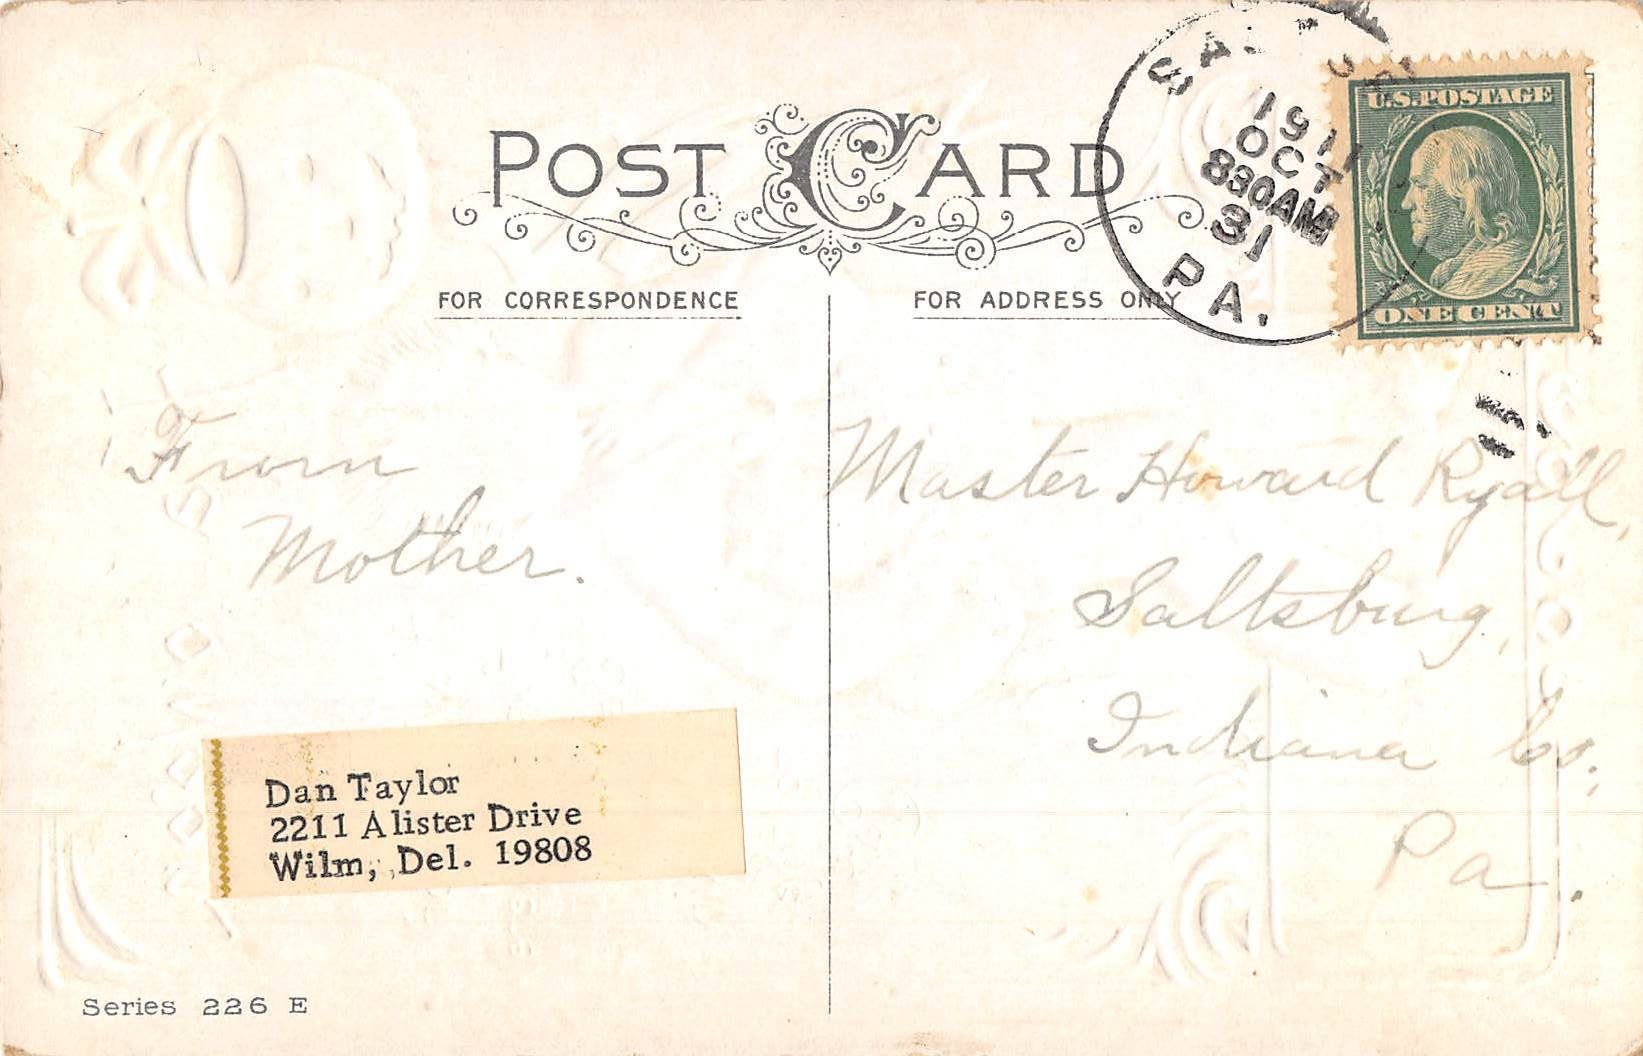 POST CARD
FOR CORRESPONDENCE
FOR ADDRESS ONLY
1911
OCT
830AM
31
PA.
U.S. POSTAGE
ONE CENT
From
Mother.
Master Howard Ryall,
Saltsburg,
Indiana Co.,
Pa.
Dan Taylor
2211 Alister Drive
Wilm, Del. 19808
Series 226 E